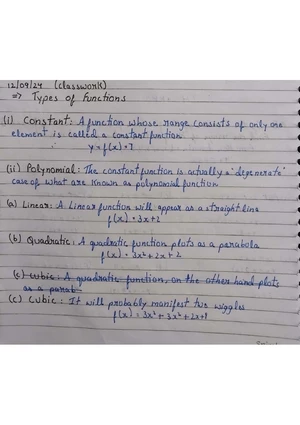 12/09/24 (classwork)
=> Types of Functions
(i) Constant: A function whose range consists of only one
element is called a constant function.
y = f(x) = 7
(ii) Polynomial: The constant function is actually a "degenerate"
case of what are known as polynomial function
(a) Linear: A Linear function will appear as a straight line
f(x) = 3x+2
(b) Quadratic: A quadratic function plots as a parabola
f(x) = 3x²+2x+2
(c) cubic: A quadratic function, on the other hand plots
as a parab
(c) Cubic: It will probably manifest two wiggles
f(x) = 3x³+3x²+2x+1